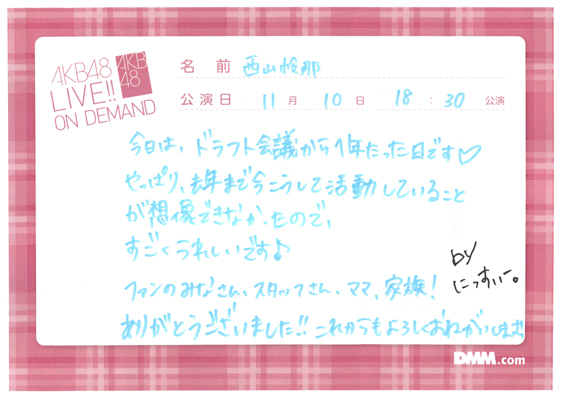 AKB48
LIVE!!
ON DEMAND
AKB
48
名前 西山怜那
公演日 11月10日 18:30公演
今日は、ドラフト会議から1年たった日です♡
やっぱり、去年まで今こうして活動していること
が想像できなかったので、
すごくうれしいです♪
ファンのみなさん、スタッフさん、ママ、家族!
ありがとうございました!!これからもよろしくおねがいします
by
にっすぃー。
DMM.com